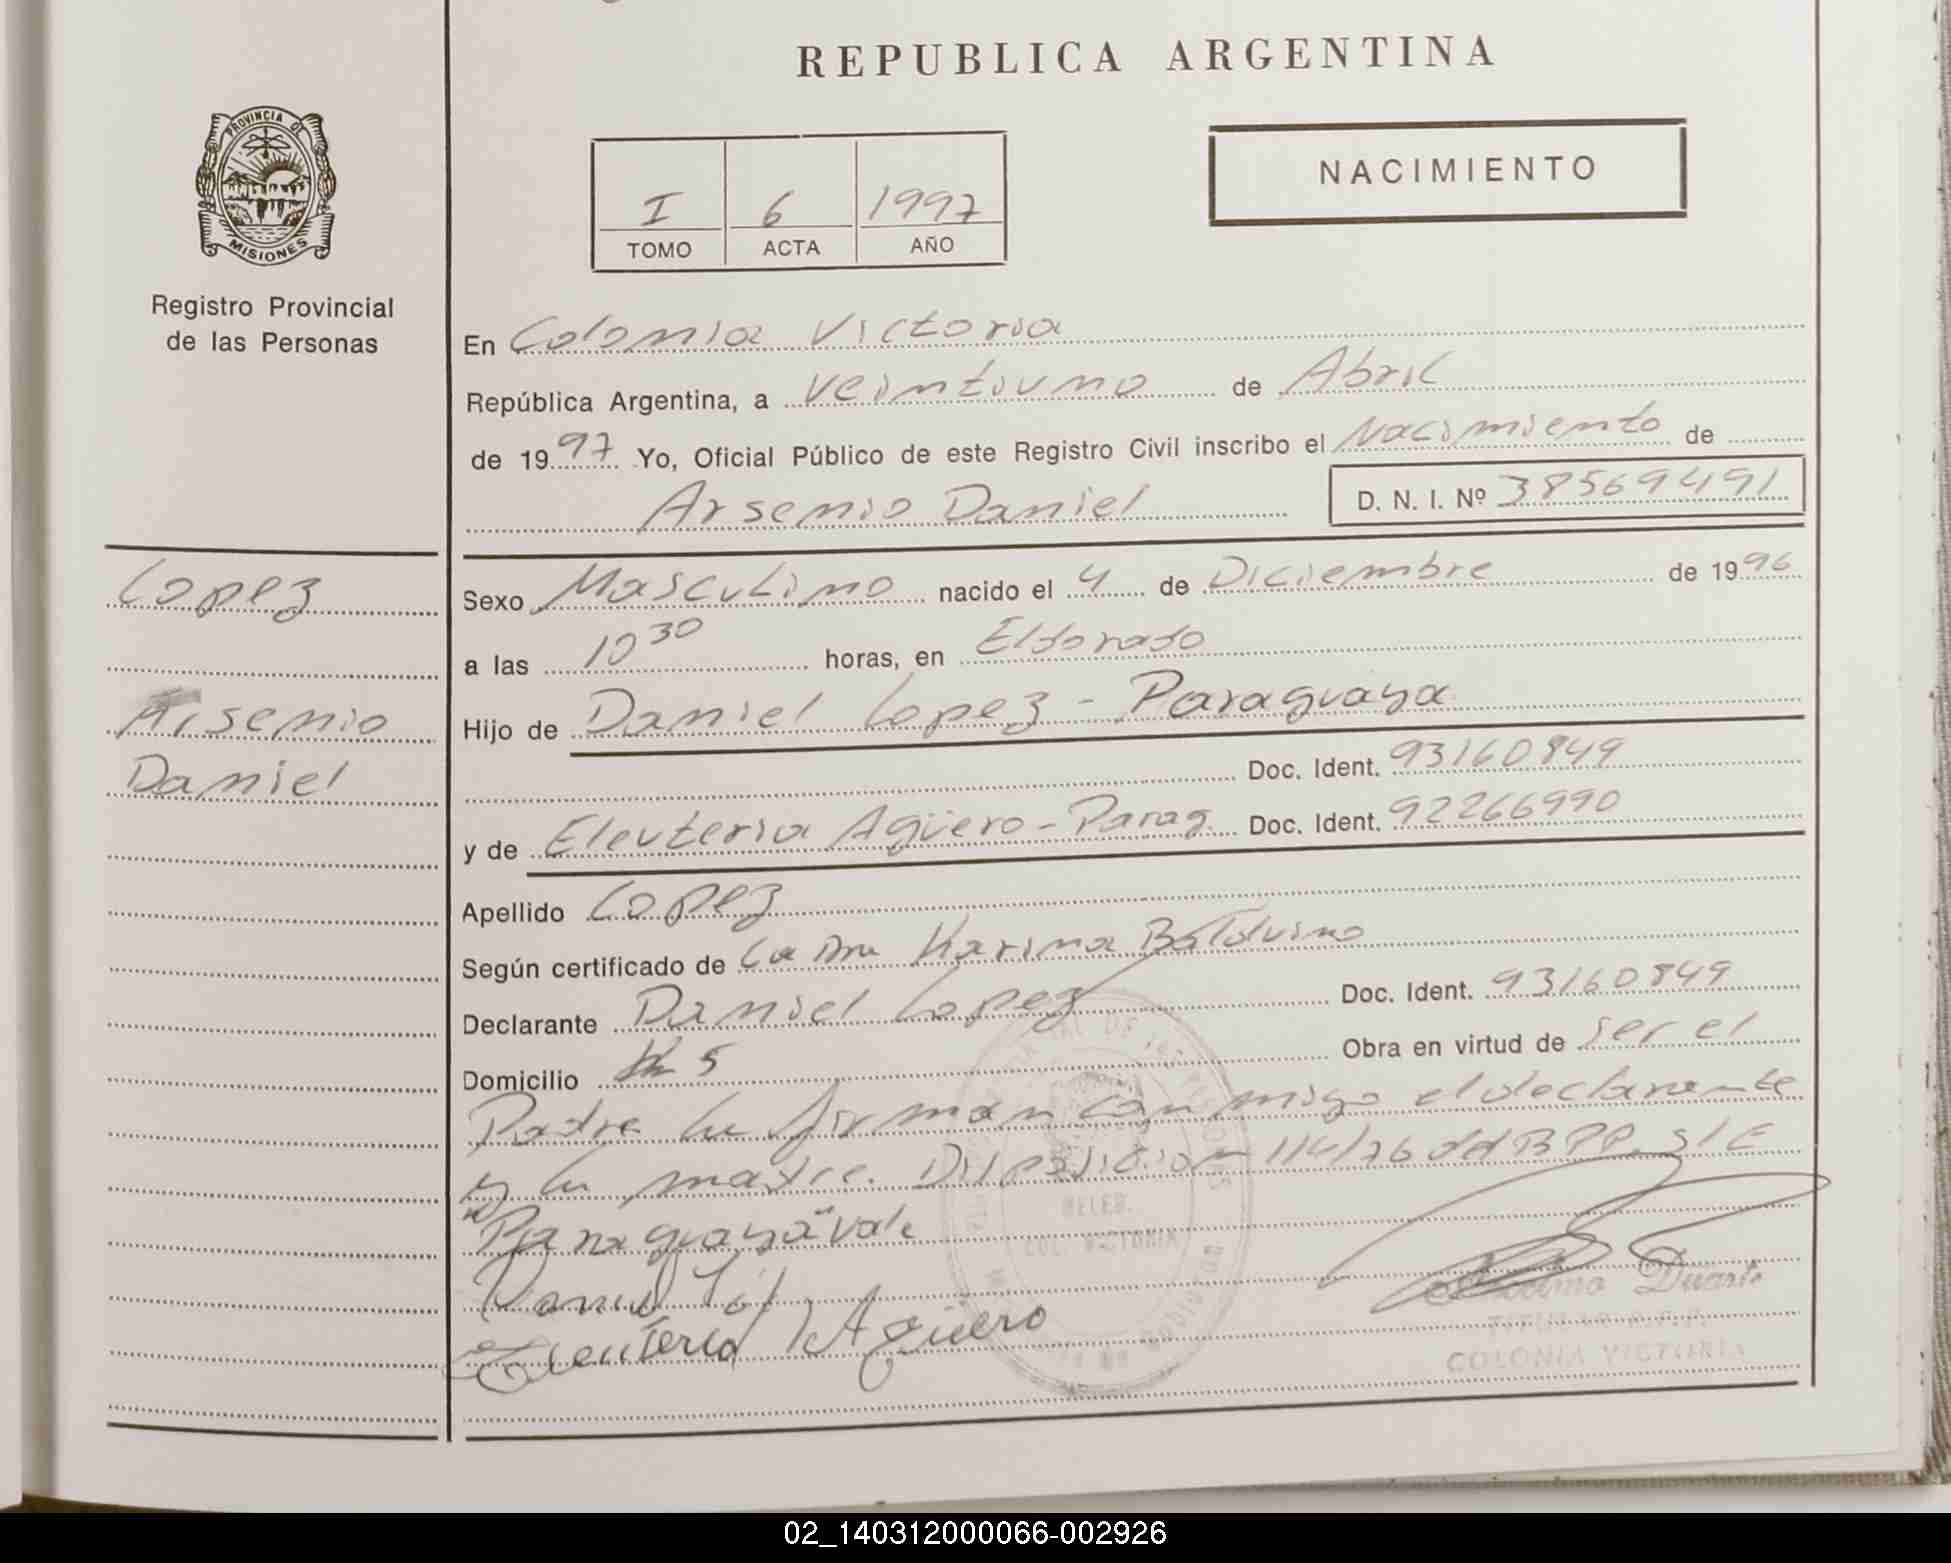 REPUBLICA ARGENTINA
PROVINCIA DE
MISIONES
Registro Provincial
de las Personas
I 6 1997
TOMO ACTA AÑO
NACIMIENTO
En Colonia Victoria
República Argentina, a veintiuno de Abril
de 1997 Yo, Oficial Público de este Registro Civil inscribo el Nacimiento de
Arsenio Daniel D. N. I. Nº 38569491
Lopez
Arsenio
Daniel
Sexo Masculino nacido el 4 de Diciembre de 1996
a las 10 30 horas, en Eldorado
Hijo de Daniel Lopez - Paraguaya
Doc. Ident. 93160849
y de Eleuteria Agüero - Parag. Doc. Ident. 92266990
Apellido Lopez
Según certificado de La Dra Karina Balduino
Declarante Daniel Lopez Doc. Ident. 93160849
Domicilio Km 5 Obra en virtud de ser el
Padre lu firman conmigo el declarante
y la madre. Disposición 114/76 del RPP. S/E
"Paraguaya" vale
Daniel
Eleuteria Agüero
COL. VICTORIA
Duarte
TITULAR
COLONIA VICTORIA
02_140312000066-002926